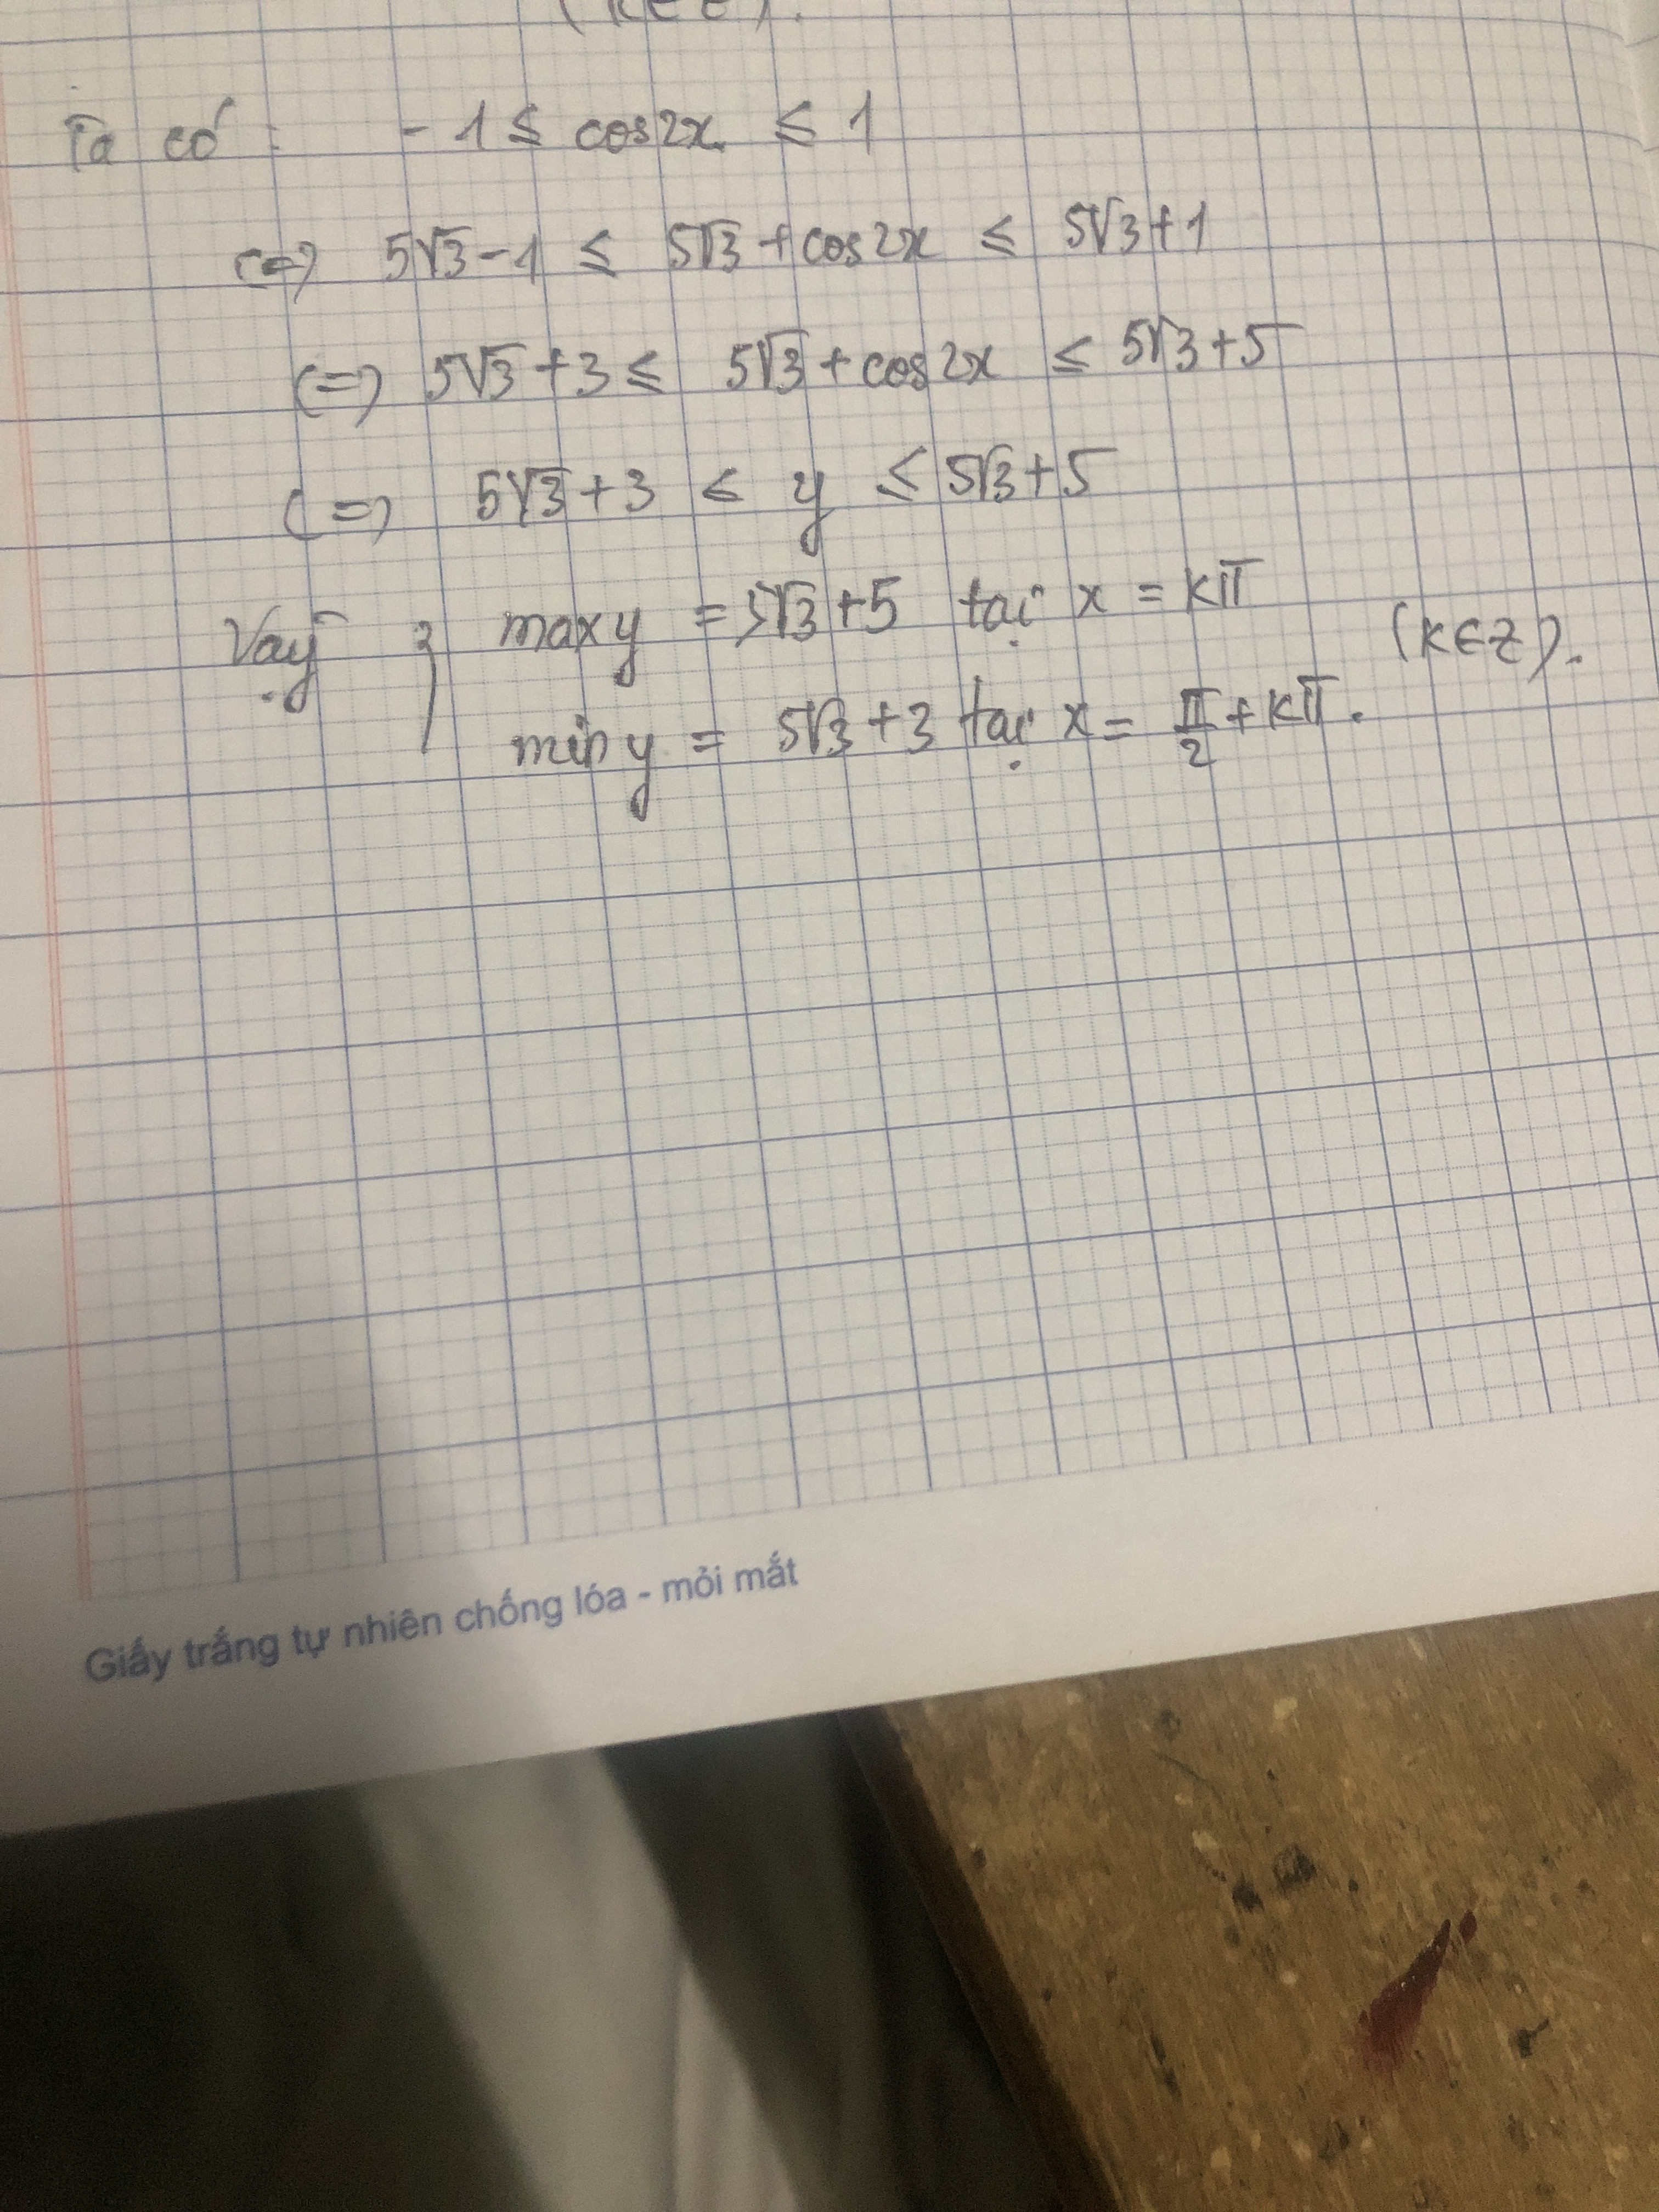 (k∈Z).
Ta có : - 1 ≤ cos2x ≤ 1
(=) 5√3-1 ≤ 5√3+cos2x ≤ 5√3+1
(=) 5√3+3 ≤ 5√3+cos2x ≤ 5√3+5
(=) 5√3+3 ≤ y ≤ 5√3+5
Vậy { max y = 5√3+5 tại x = kπ (k∈Z).
min y = 5√3+3 tại x = π/2 + kπ.
Giấy trắng tự nhiên chống lóa - mỏi mắt